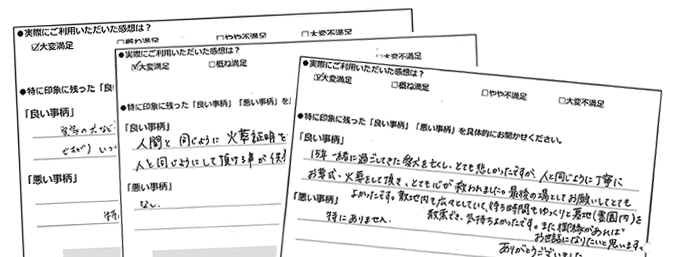 ●実際にご利用いただいた感想は？
☑大変満足
□概ね満足
□やや不満足
□大変不満足
●特に印象に残った「良い事柄」
「良い事柄」
「悪い事柄」
●実際にご利用いただいた感想は？
☑大変満足
□概ね満足
●特に印象に残った「良い事柄」「悪い事柄」を
「良い事柄」
人間と同じように火葬証明を
人と同じようにして頂ける事が
「悪い事柄」
なし.
●実際にご利用いただいた感想は？
☑大変満足
□概ね満足
□やや不満足
□大変不満足
●特に印象に残った「良い事柄」「悪い事柄」を具体的にお聞かせください。
「良い事柄」
15年一緒に過ごしてきた愛犬を亡くし、とても悲しかったですが、人と同じように丁寧に
お葬式、火葬をして頂き、とても心が救われました。最後の場としてお願いしてとても
よかったです。敷地内も広々としていて、待ち時間もゆっくりと墓地(霊園内)を
散策でき、気持ちよかったです。また御縁があれば
お世話になりたいと思います。
ありがとうございました
「悪い事柄」
特にありません.